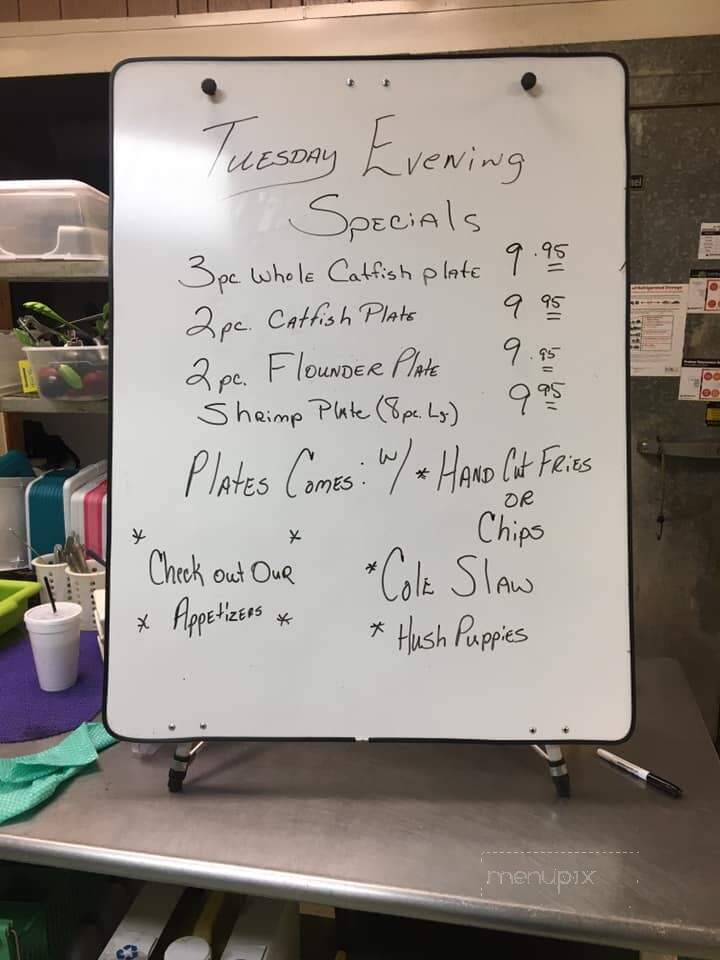 Tuesday Evening
Specials
3pc Whole Catfish plate 9.95
2pc. Catfish Plate 9 95
2pc. Flounder Plate 9.95
Shrimp Plate (8pc. Lg.) 9 95
Plates Comes: w/ * Hand Cut Fries
OR
Chips
* *
Check out Our
* Appetizers *
* Cole Slaw
* Hush Puppies
menupix